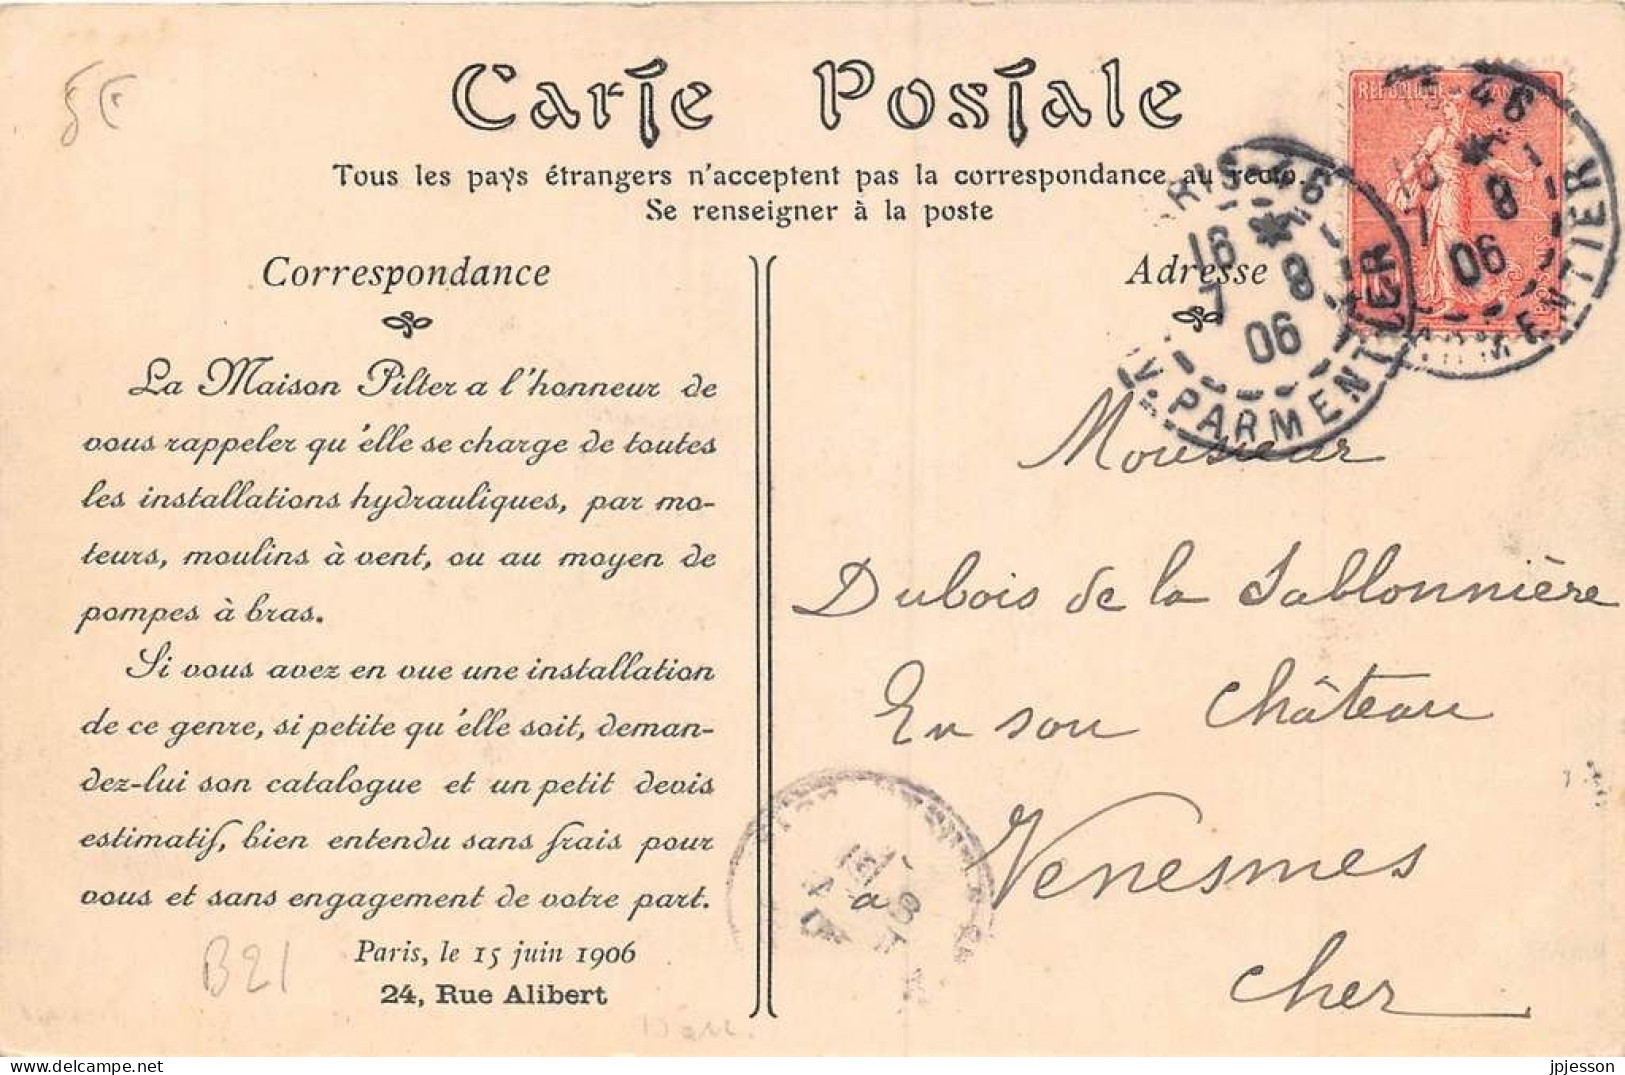 5€
Carte Postale
Tous les pays étrangers n'acceptent pas la correspondance au recto.
Se renseigner à la poste
Correspondance
La Maison Pilter a l'honneur de
vous rappeler qu'elle se charge de toutes
les installations hydrauliques, par mo-
teurs, moulins à vent, ou au moyen de
pompes à bras.
Si vous avez en vue une installation
de ce genre, si petite qu'elle soit, deman-
dez-lui son catalogue et un petit devis
estimatif, bien entendu sans frais pour
vous et sans engagement de votre part.
Paris, le 15 juin 1906
24, Rue Alibert
B21
Adresse
RIS-46
16
7 8
06
V. PARMENTIER
46
16
7 8
06
MENTIER
Monsieur
Dubois de la Sablonnière
En son Château
à Venesmes
Cher
jpjesson